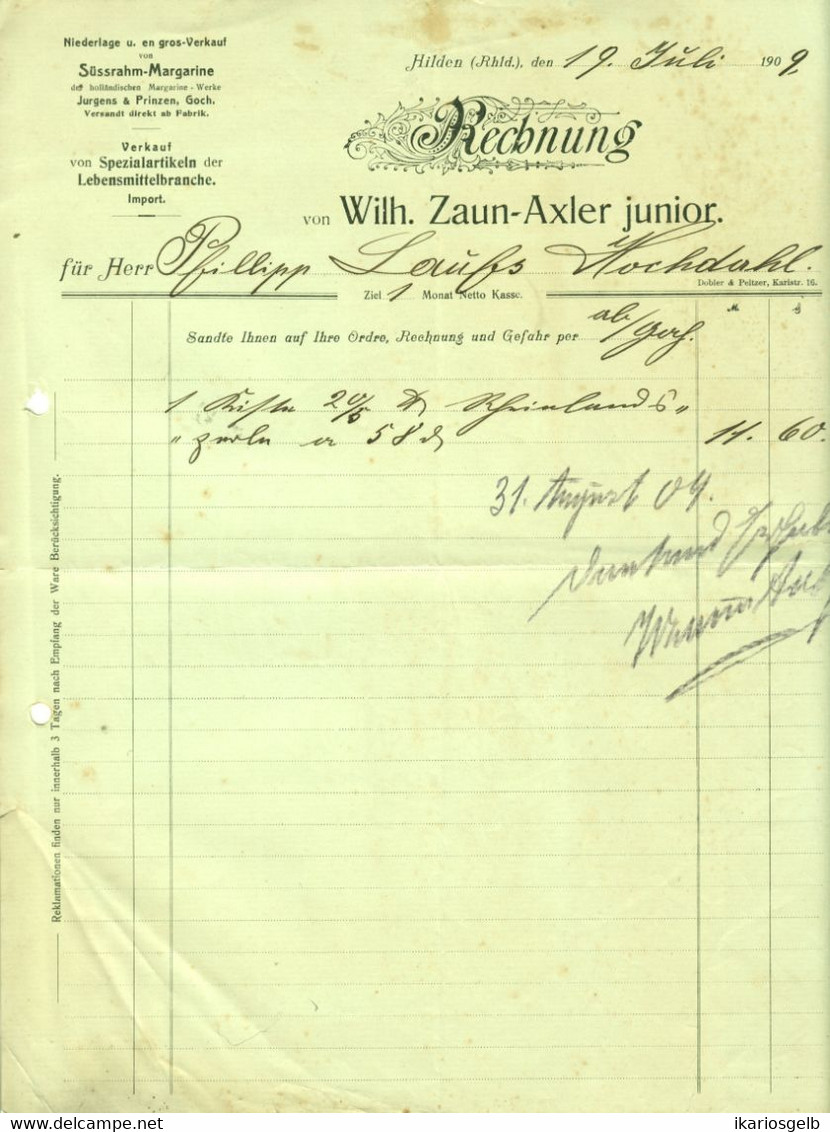 Niederlage u. en gros-Verkauf
von
Süssrahm-Margarine
der holländischen Margarine-Werke
Jurgens & Prinzen, Goch.
Versandt direkt ab Fabrik.
Verkauf
von Spezialartikeln der
Lebensmittelbranche.
Import.
Hilden (Rhld.), den 19. Juli 1909.
Rechnung
von Wilh. Zaun-Axler junior.
für Herr Phillipp Laufs Hochdahl.
Dobler & Peltzer, Karlstr. 16.
Ziel 1 Monat Netto Kasse.
Sandte Ihnen auf Ihre Ordre, Rechnung und Gefahr per ab/Goch.
1 Kiste 20/5 ℔ Rheinlands"
" perle a 58 ₰ 11. 60.
31. August 09.
Dankend
Reklamationen finden nur innerhalb 3 Tagen nach Empfang der Ware Berücksichtigung.
ikariosgelb